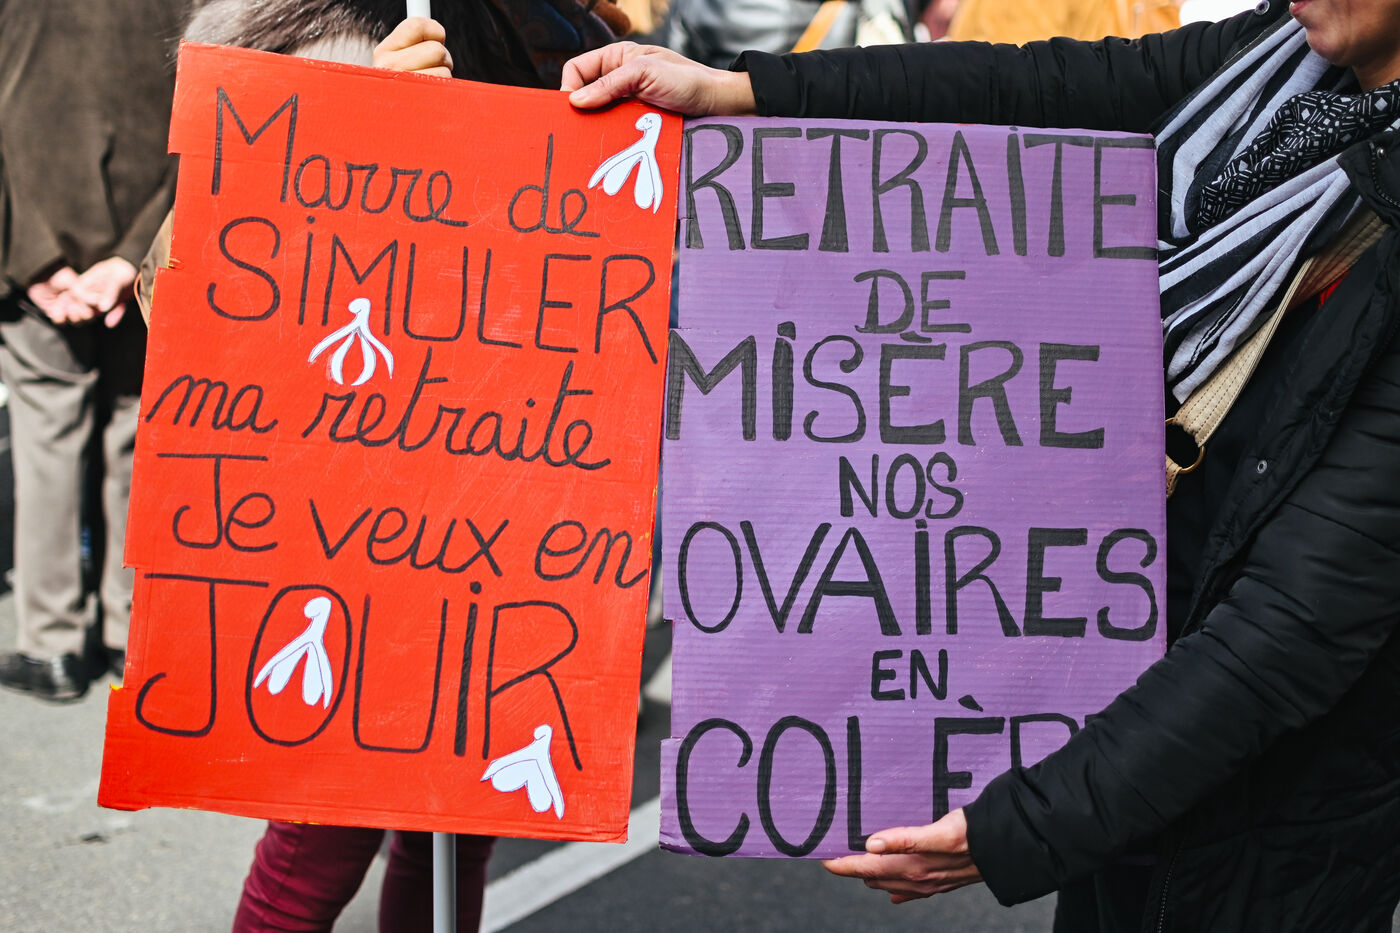 Marre de
SiMULER
ma retraite
Je veux en
JOUiR
RETRAiTE
DE
MiSÈRE
NOS
OVAiRES
EN
COLÈR